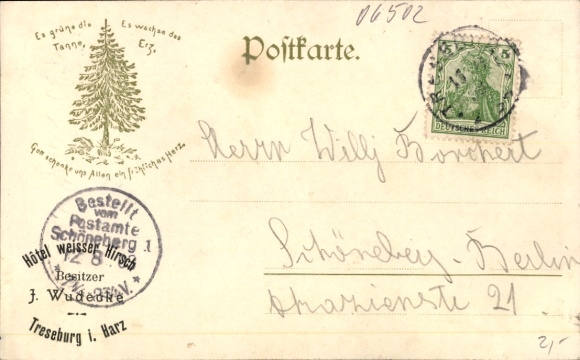 06502
Es grüne die Tanne,
Es wachse das Erz,
Gott schenke uns Allen ein fröhliches Herz.
Postkarte.
5
DEUTSCHES REICH
Herrn Willy Borchert
Schöneberg-Berlin
21
Bestellt
vom
Postamte
Schöneberg 1
12 8
Hôtel weisser Hirsch
Besitzer
J. Wudecke
Treseburg i. Harz
2,-